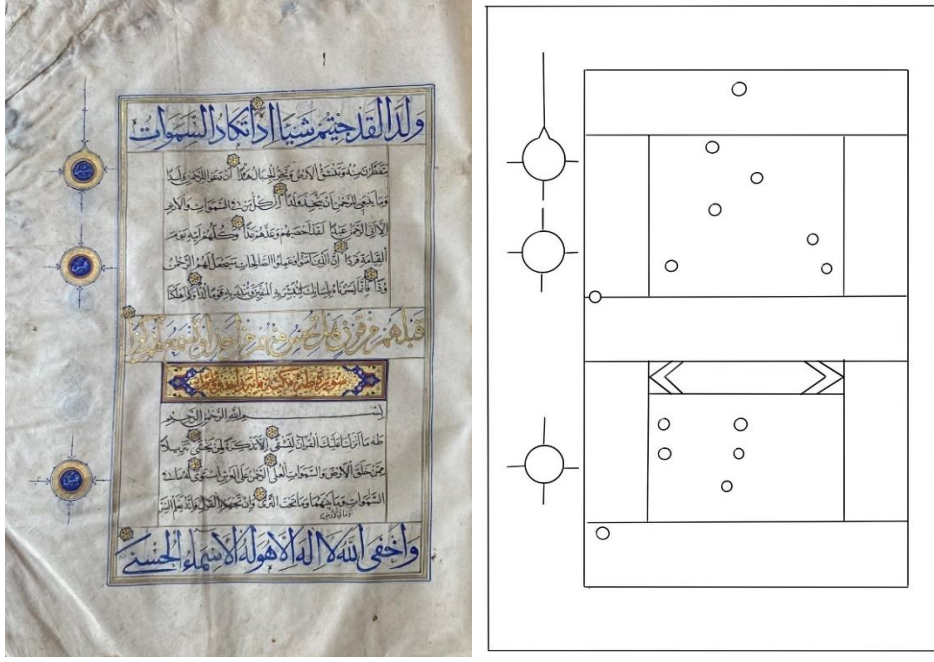 ولدا لقد جئتم شيئا ادا تكاد السموات
يتفطرن منه وتنشق الارض وتخر الجبال هدا ان دعوا للرحمن ولدا
وما ينبغى للرحمن ان يتخذ ولدا ان كل من فى السموات والارض
الا اتى الرحمن عبدا لقد احصهم وعدهم عدا وكلهم اتيه يوم
القيامة فردا ان الذين امنوا وعملوا الصالحات سيجعل لهم الرحمن
ودا فانما يسرناه بلسانك لتبشر به المتقين وتنذر به قوما لدا وكم اهلكنا
قبلهم من قرن هل تحس منهم من احد او تسمع لهم ركزا
سورة طه
بسم الله الرحمن الرحيم
طه ما انزلنا عليك القران لتشقى الا تذكرة لمن يخشى تنزيلا
ممن خلق الارض والسموات العلى الرحمن على العرش استوى له ما فى
السموات وما بينهما وما تحت الثرى وان تجهر بالقول فانه يعلم السر
وما فى الارض
واخفى الله لا اله الا هو له الاسماء الحسنى